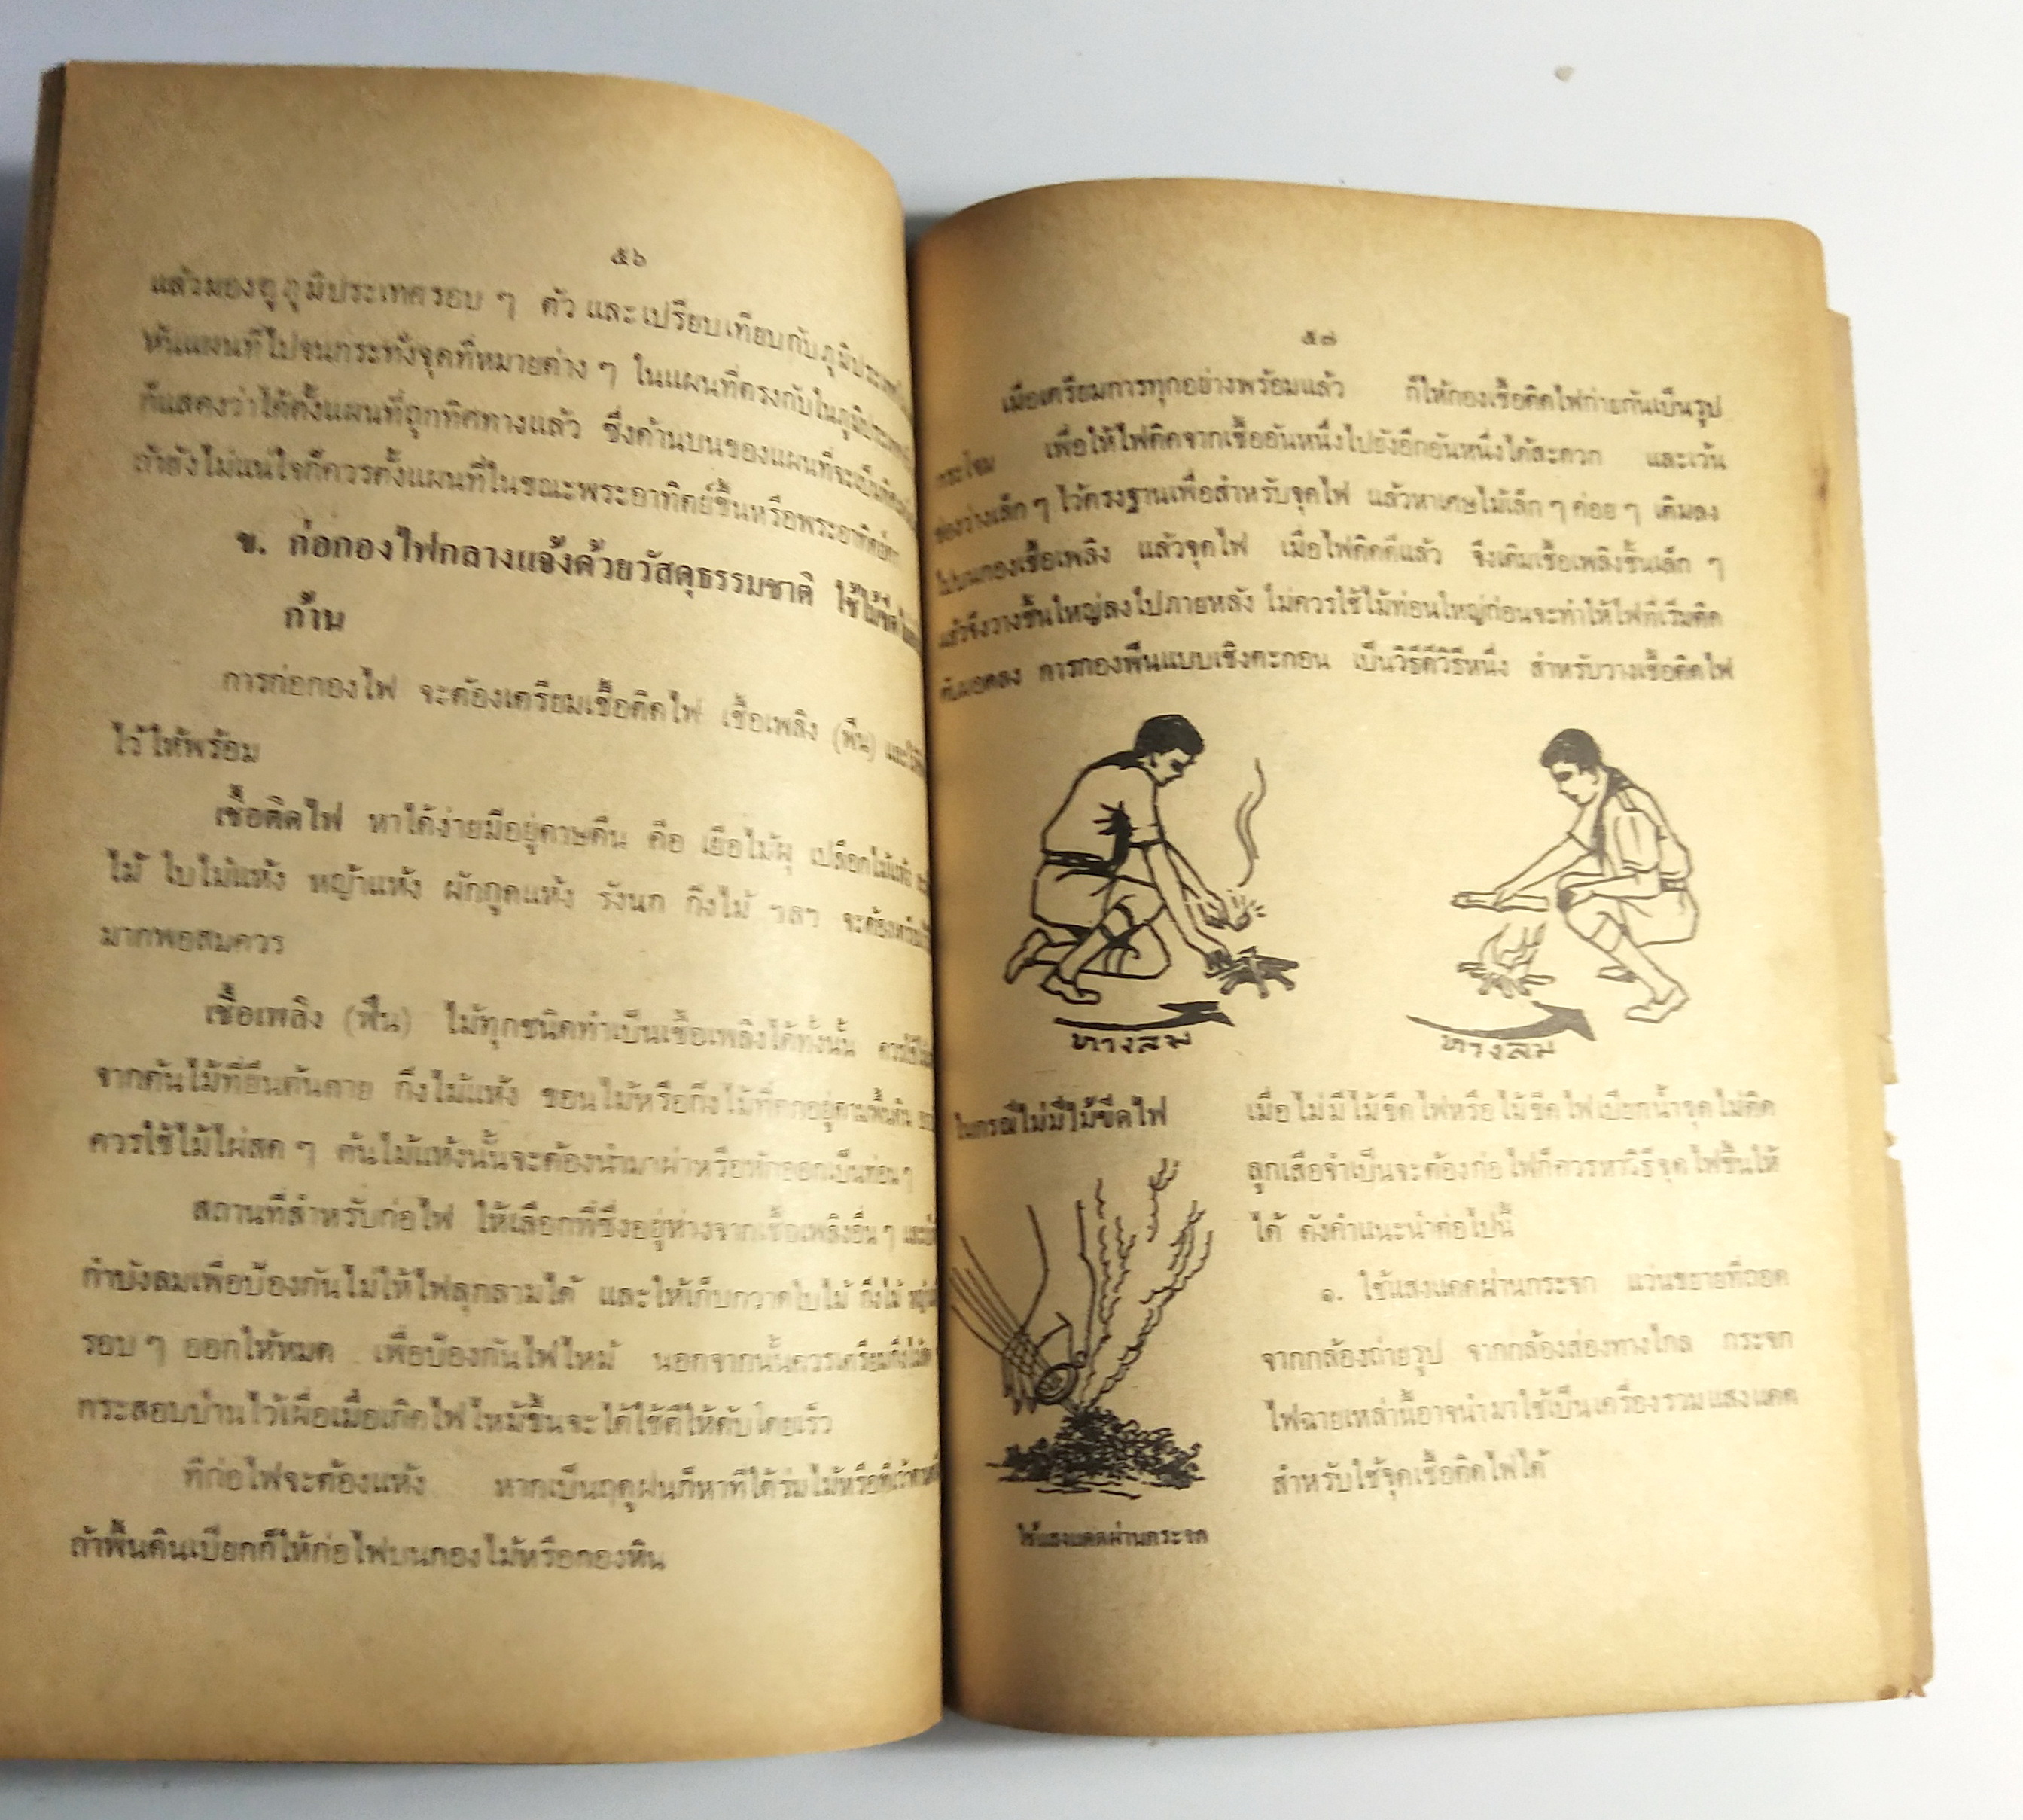 ๕๖
แล้วมองดูภูมิประเทศรอบ ๆ ตัว และเปรียบเทียบกับภูมิประเทศ
หันแผนที่ไปจนกระทั่งจุดที่หมายต่าง ๆ ในแผนที่ตรงกับในภูมิประเทศ
ก็แสดงว่าได้ตั้งแผนที่ถูกทิศทางแล้ว ซึ่งด้านบนของแผนที่จะเป็นทิศ
ถ้ายังไม่แน่ใจก็ควรตั้งแผนที่ในขณะพระอาทิตย์ขึ้นหรือพระอาทิตย์ตก
ข. ก่อกองไฟกลางแจ้งด้วยวัสดุธรรมชาติ ใช้ไม้ขีด
ก้าน
การก่อกองไฟ จะต้องเตรียมเชื้อติดไฟ เชื้อเพลิง (ฟืน)
ไว้ให้พร้อม
เชื้อติดไฟ หาได้ง่ายมีอยู่ดาษดื่น คือ เยื่อไม้ผุ เปลือกไม้แห้ง
ไม้ ใบไม้แห้ง หญ้าแห้ง ผักกูดแห้ง รังนก กิ่งไม้ ฯลฯ จะต้อง
มากพอสมควร
เชื้อเพลิง (ฟืน) ไม้ทุกชนิดทำเป็นเชื้อเพลิงได้ทั้งนั้น
จากต้นไม้ที่ยืนต้นตาย กิ่งไม้แห้ง ขอนไม้หรือกิ่งไม้ที่ตกอยู่ตามพื้นดิน
ควรใช้ไม้ไผ่สด ๆ ต้นไม้แห้งนั้นจะต้องนำมาผ่าหรือหักออกเป็นท่อน ๆ
สถานที่สำหรับก่อไฟ ให้เลือกที่ซึ่งอยู่ห่างจากเชื้อเพลิงอื่น ๆ
กำบังลมเพื่อป้องกันไม่ให้ไฟลุกลามได้ และให้เก็บกวาดใบไม้ กิ่งไม้
รอบ ๆ ออกให้หมด เพื่อป้องกันไฟไหม้ นอกจากนั้นควรเตรียมกิ่งไม้สด
กระสอบป่านไว้เผื่อเมื่อเกิดไฟไหม้ขึ้นจะได้ใช้ตีให้ดับโดยเร็ว
ที่ก่อไฟจะต้องแห้ง หากเป็นฤดูฝนก็หาที่ใต้ร่มไม้หรือ
ถ้าพื้นดินเปียกก็ให้ก่อไฟบนกองไม้หรือกองหิน
๕๗
เมื่อเตรียมการทุกอย่างพร้อมแล้ว ก็ให้กองเชื้อติดไฟก่ายกันเป็นรูป
กระโจม เพื่อให้ไฟติดจากเชื้ออันหนึ่งไปยังอีกอันหนึ่งได้สะดวก และเว้น
ช่องว่างเล็ก ๆ ไว้ตรงฐานเพื่อสำหรับจุดไฟ แล้วหาเศษไม้เล็ก ๆ ค่อย ๆ เติมลง
ไปบนกองเชื้อเพลิง แล้วจุดไฟ เมื่อไฟติดดีแล้ว จึงเติมเชื้อเพลิงชิ้นเล็ก ๆ
แล้วจึงวางชิ้นใหญ่ลงไปภายหลัง ไม่ควรใช้ไม้ท่อนใหญ่ก่อนจะทำให้ไฟที่เริ่มติด
ดับมอดลง การกองฟืนแบบเชิงตะกอน เป็นวิธีดีวิธีหนึ่ง สำหรับวางเชื้อติดไฟ
ทางลม
ทางลม
ในกรณีไม่มีไม้ขีดไฟ
เมื่อไม่มีไม้ขีดไฟหรือไม้ขีดไฟเปียกน้ำจุดไม่ติด
ลูกเสือจำเป็นจะต้องก่อไฟก็ควรหาวิธีจุดไฟขึ้นให้
ได้ ดังคำแนะนำต่อไปนี้
๑. ใช้แสงแดดผ่านกระจก แว่นขยายที่ถอด
จากกล้องถ่ายรูป จากกล้องส่องทางไกล กระจก
ไฟฉายเหล่านี้อาจนำมาใช้เป็นเครื่องรวมแสงแดด
สำหรับใช้จุดเชื้อติดไฟได้
ใช้แสงแดดผ่านกระจก